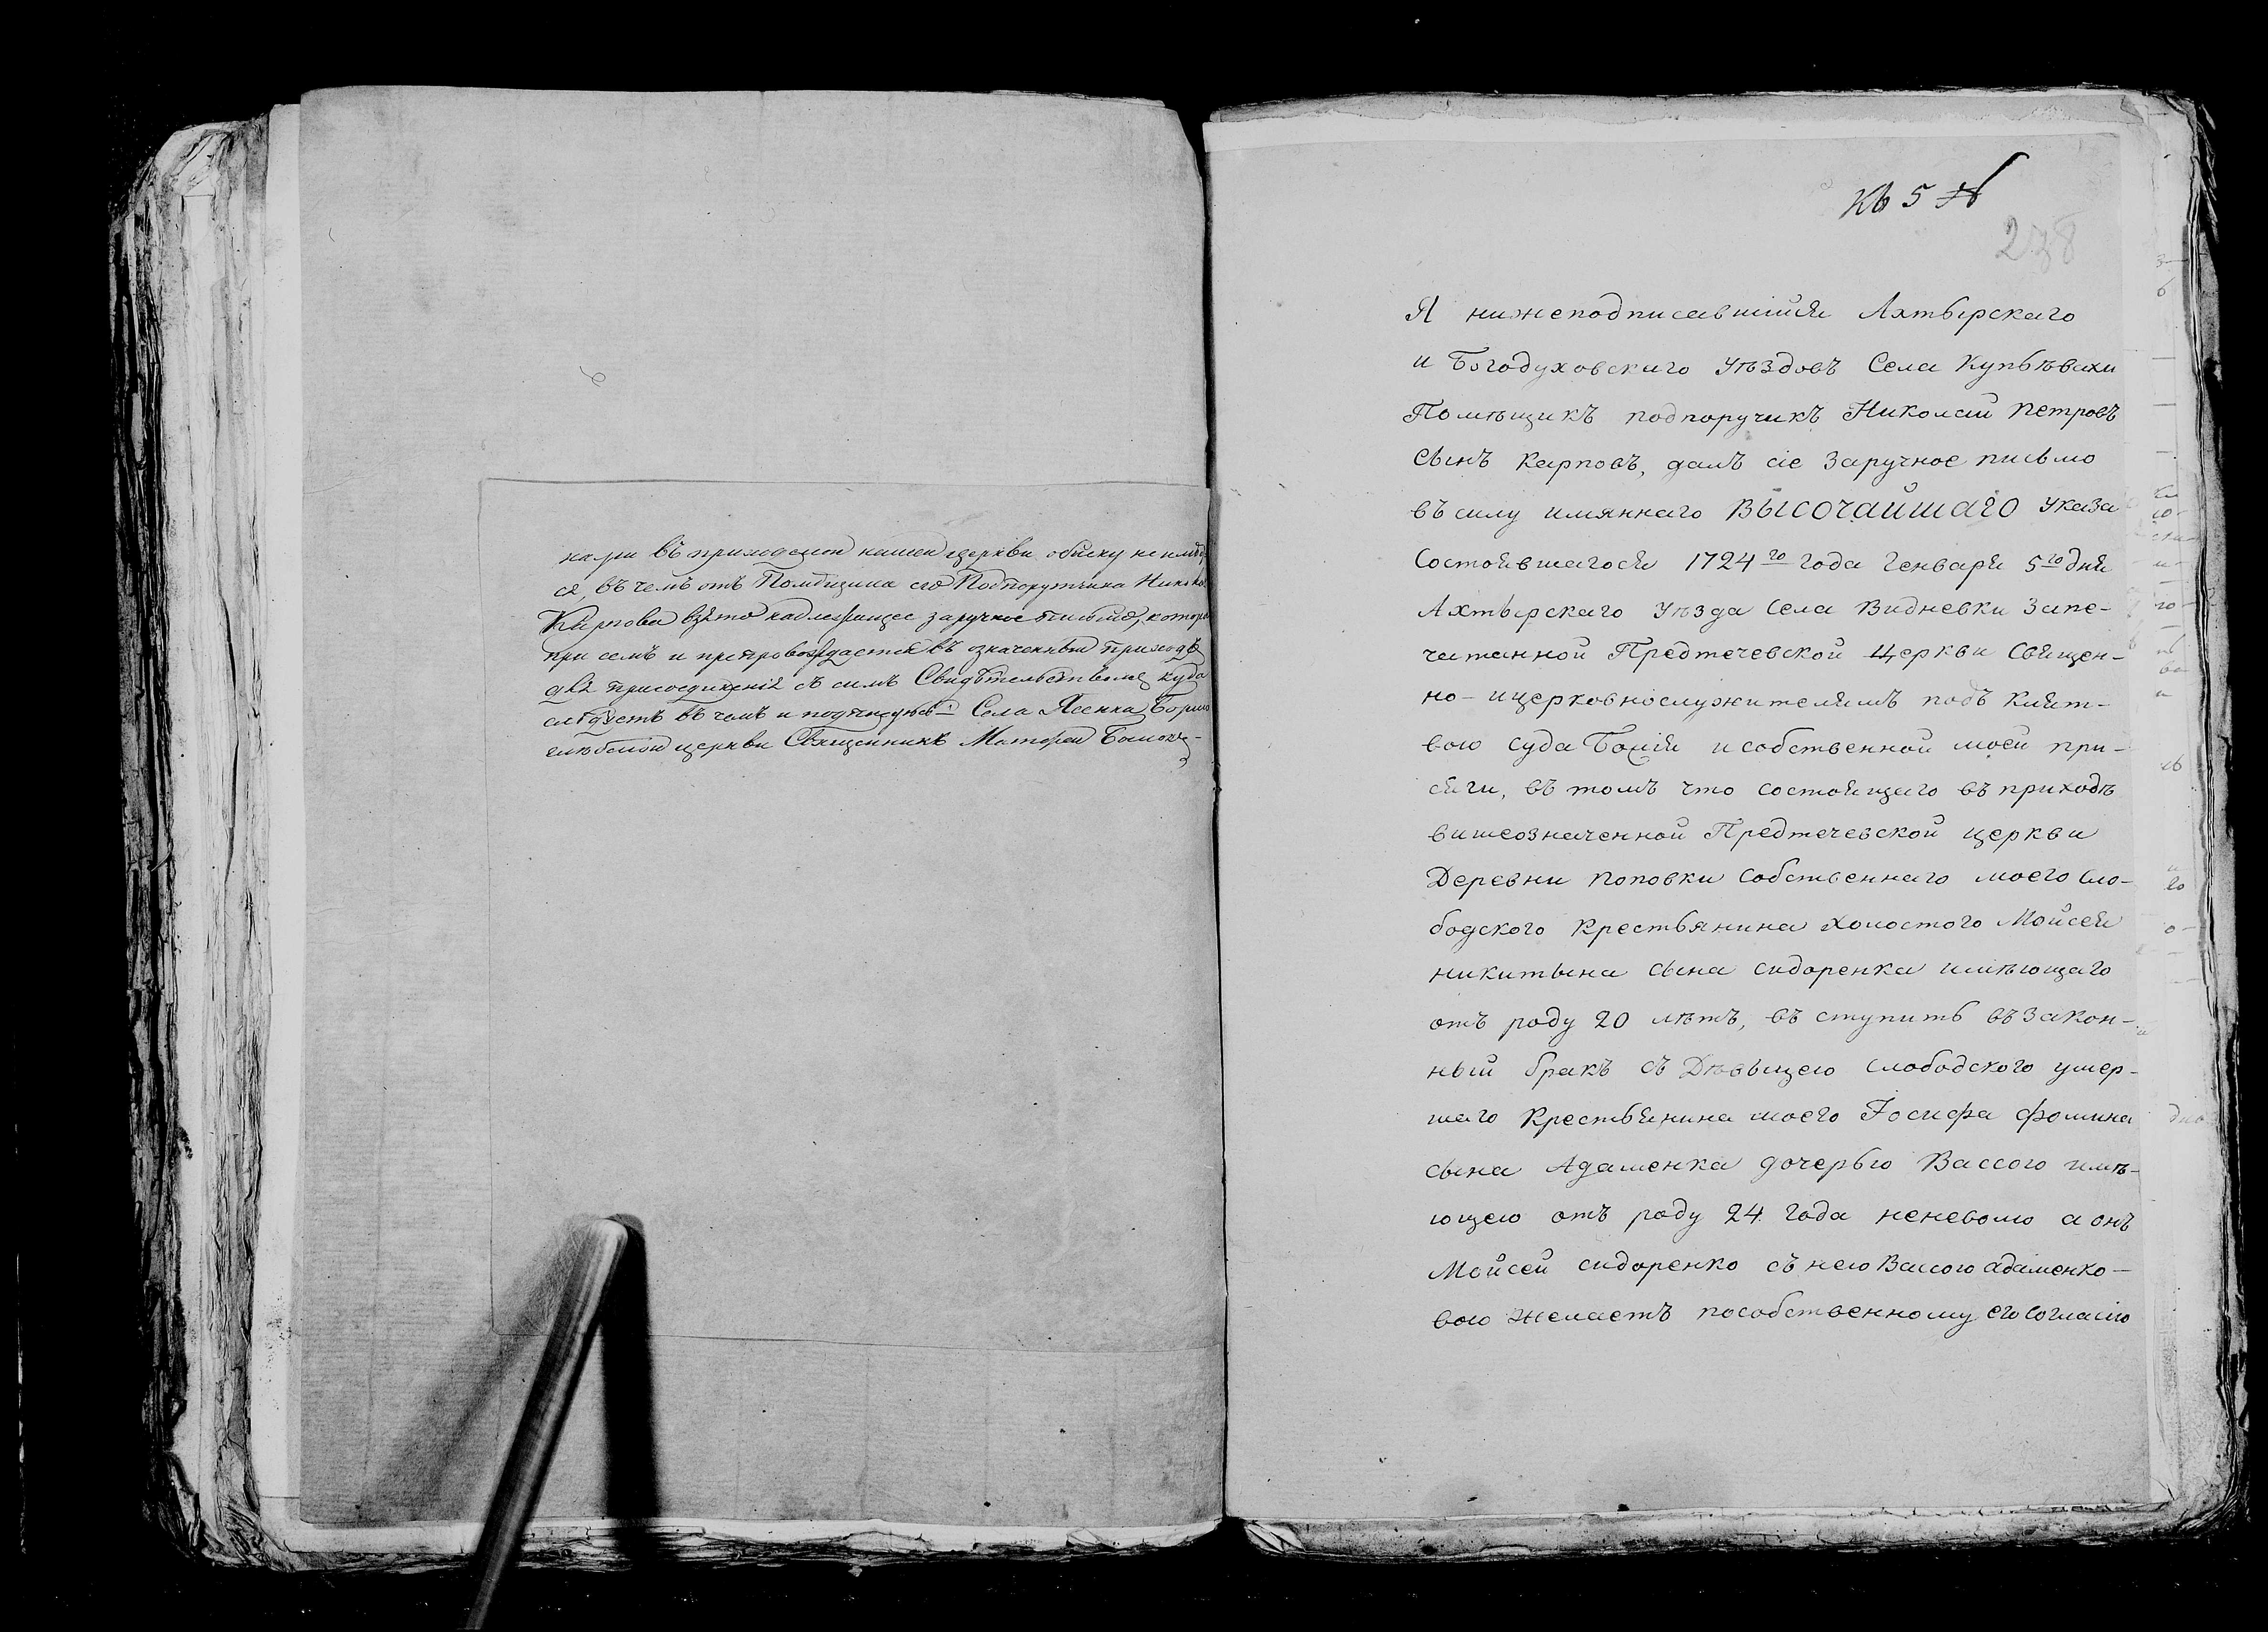 нами въ приходской нашей церкви обыску не имѣет
ся, въ чемъ отъ Помѣщика его Подпорутчика Николая
Карпова взято надлежащее заручное письмо, которое
при семъ и препровождается въ означенный приходъ
для присоединенія съ симъ Свидѣтельствомъ куда
слѣдуетъ въ чемъ и подпысуюсь Села Ясенка
церкви Священникъ Матфей
Къ 5 №
238
Я нижеподписавшийся Ахтырскаго
и Богодуховскаго уѣздовъ Села Купьѣвахи
Помѣщикъ подпоручикъ Николай Петровъ
Сынъ Карповъ, далъ сіе Заручное письмо
въ силу имяннаго ВЫСОЧАЙШАГО указа
Состоявшагося 1724го года Генваря 5го дня
Ахтырскаго уѣзда Села Видневки Запе-
чатанной Предтечевской Церкви Священ-
но- и церковнослужителямъ подъ Клят-
вою Суда Божія и собственной моей при-
сяги, въ томъ что состоящаго въ приходѣ
вишеозначенной Предтечевской церкви
Деревни Поповки Собственнаго моего Сло-
бодского Крестьянина холостого Мойсея
никитына сына сидоренка имѣющаго
отъ роду 20 лѣтъ, въ ступить въ Закон-
ный бракъ съ Дѣвыцею слободского умер-
шаго Крестьянина моего Іосифа фомина
сына Адаменка дочерью Вассою имѣ-
ющею отъ роду 24 года неневолю а онъ
Мойсей сидоренко съ нею Вассою адаменко-
вою желаетъ пособственному его Согласію